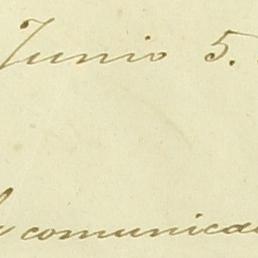 Junio 5.
comunica